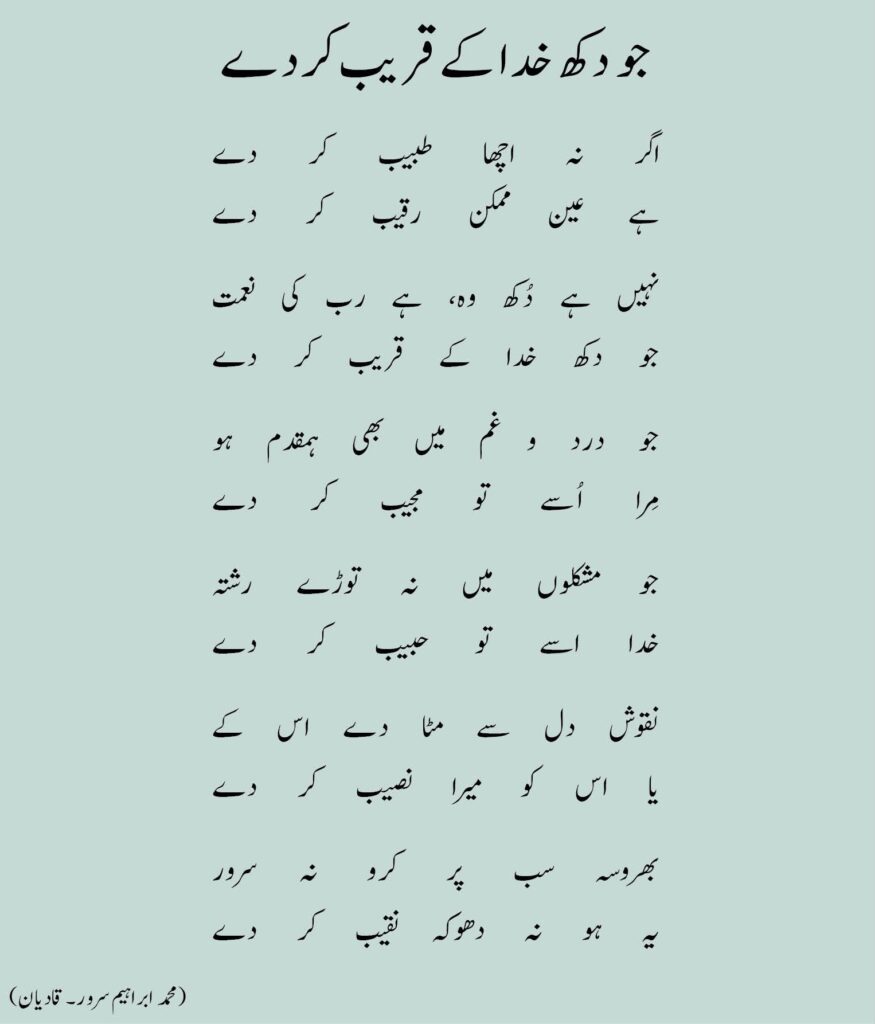 جو دکھ خدا کے قریب کر دے
اگر نہ اچھا طبیب کر دے
ہے عین ممکن رقیب کر دے
نہیں ہے دُکھ وہ، ہے رب کی نعمت
جو دکھ خدا کے قریب کر دے
جو درد و غم میں بھی ہمقدم ہو
مِرا اُسے تو مجیب کر دے
جو مشکلوں میں نہ توڑے رشتہ
خدا اسے تو حبیب کر دے
نقوش دل سے مٹا دے اس کے
یا اس کو میرا نصیب کر دے
بھروسہ سب پر کرو نہ سرور
یہ ہو نہ دھوکہ نقیب کر دے
(محمد ابراہیم سرور۔ قادیان)